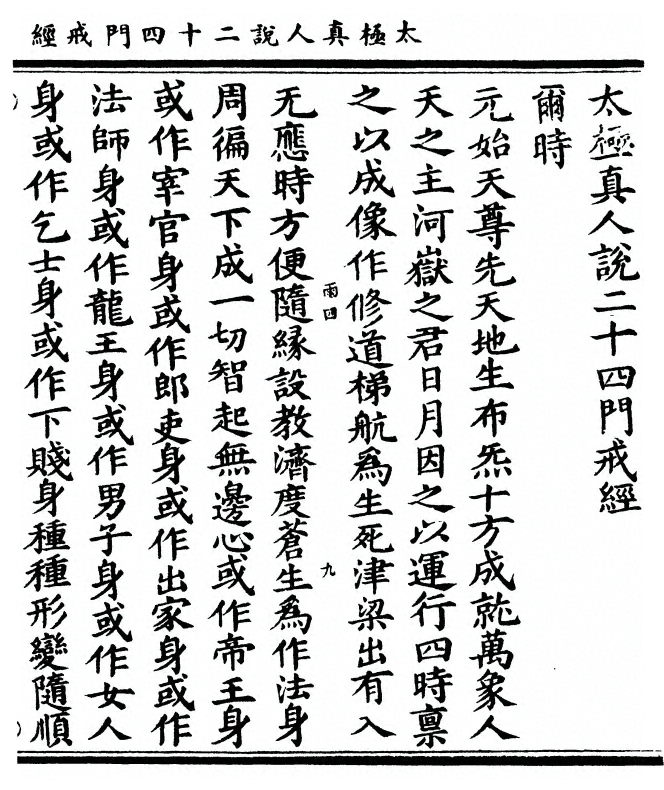 太極真人說二十四門戒經
太極真人說二十四門戒經
爾時
元始天尊先天地生布炁十方成就萬象人
天之主河嶽之君日月因之以運行四時稟
之以成像作修道梯航為生死津梁出有入
雨四
九
无應時方便隨緣設教濟度蒼生為作法身
周徧天下成一切智起無邊心或作帝王身
或作宰官身或作郎吏身或作出家身或作
法師身或作龍王身或作男子身或作女人
身或作乞士身或作下賤身種種形變隨順